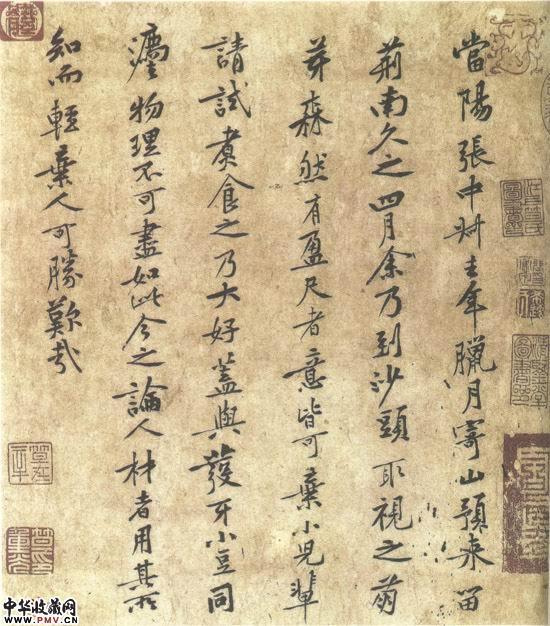 當陽張中叔去年臘月寄山預來留
荊南久之四月余乃到沙頭取視之萌
芽森然有盈尺者意皆可棄小兒輩
請試煑食之乃大好蓋與發牙小豆同
法物理不可盡如此今之論人材者用其所
知而輕棄人可勝歎哉
中华收藏网
www.PMV.cn